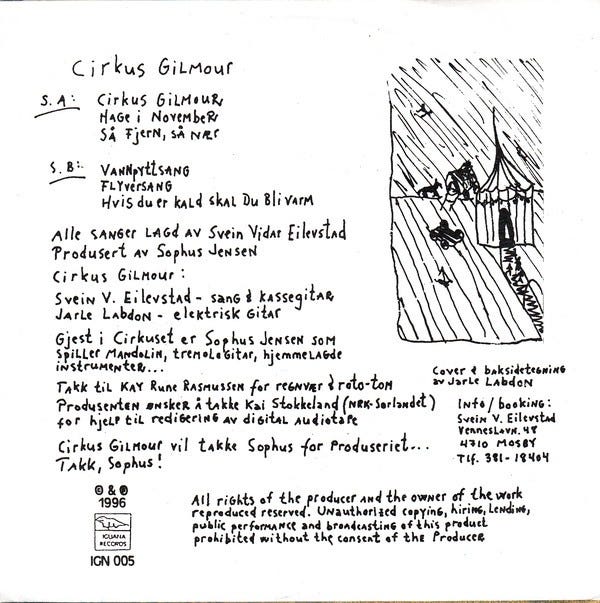 Cirkus Gilmour
S. A:
Cirkus Gilmour
Hage i November
Så Fjern, så nær
S. B:
Vannpyttsang
Flyversang
Hvis du er kald skal Du Bli varm
Alle sanger lagd av Svein Vidar Eilevstad
Produsert av Sophus Jensen
Cirkus Gilmour:
Svein V. Eilevstad - sang & kassegitar
Jarle Labdon - elektrisk gitar
Gjest i Cirkuset er Sophus Jensen som
spiller Mandolin, tremologitar, hjemmelagde
instrumenter...
Takk til Kay Rune Rasmussen for regnvær & roto-tom
Produsenten ønsker å takke Kai Stokkeland (NRK-Sørlandet)
for hjelp til redigering av digital audiotape
Cirkus Gilmour vil takke Sophus for Produseriet...
Takk, Sophus!
Cover & baksidetegning
av Jarle Labdon
Info/booking:
Svein V. Eilevstad
Venneslavn. 48
4710 Mosby
Tlf. 381-18404
© & ℗
1996
IGUANA
RECORDS
IGN 005
All rights of the producer and the owner of the work
reproduced reserved. Unauthorized copying, hiring, lending,
public performance and broadcasting of this product
prohibited without the consent of the Producer